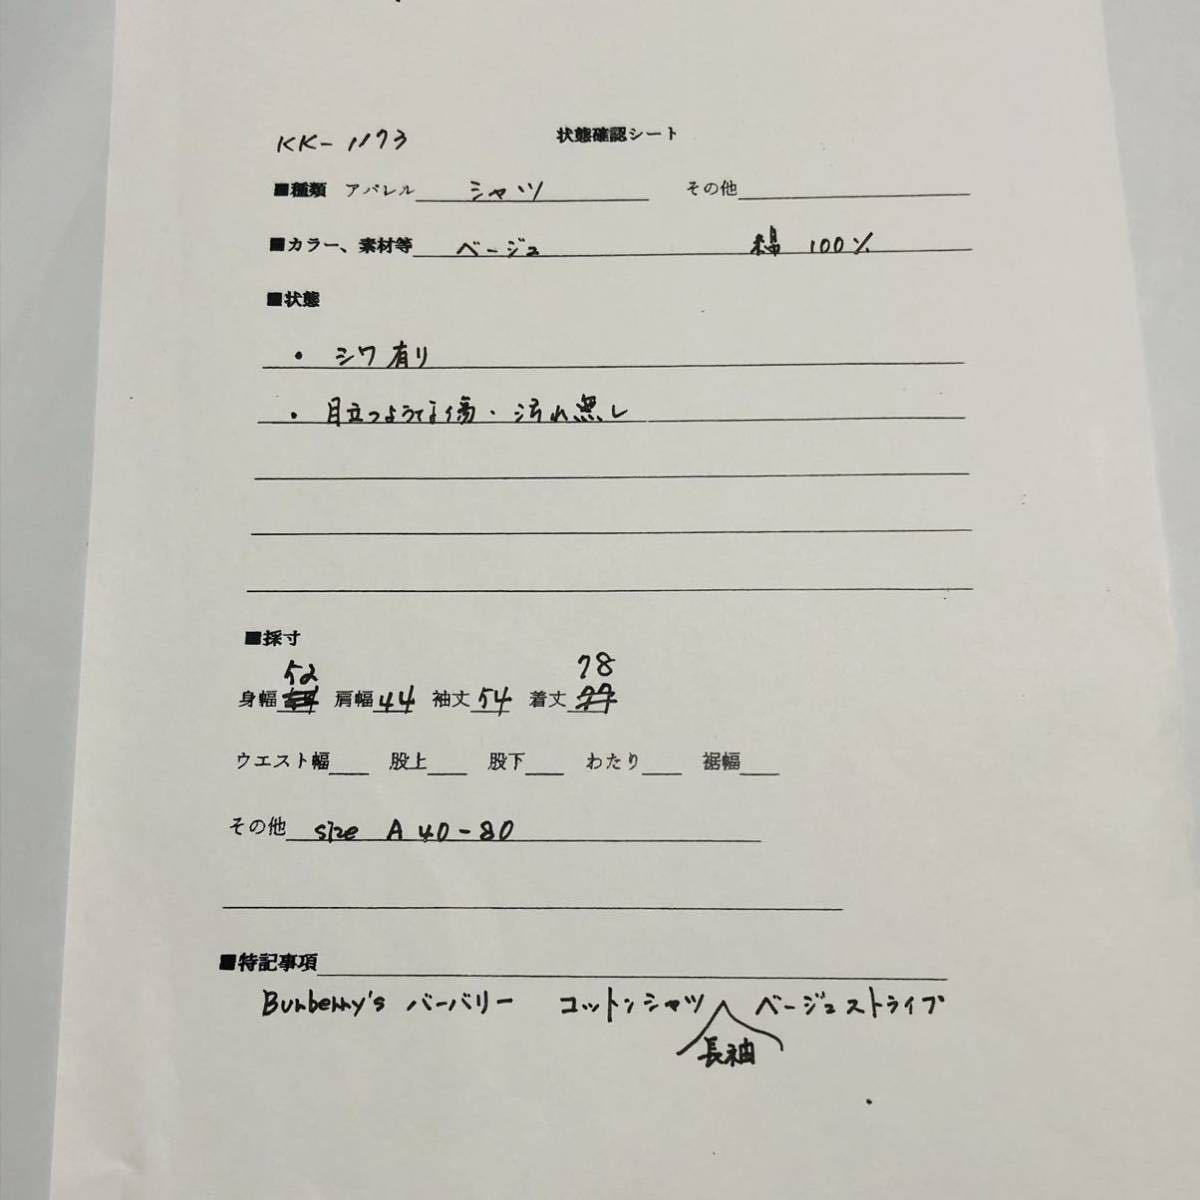 KK-1173 状態確認シート
■種類 アパレル シャツ その他
■カラー、素材等 ベージュ 綿 100%
■状態
・ シワ有り
・ 目立つような傷・汚れ無し
■採寸
52 78
身幅 肩幅 44 袖丈 54 着丈
ウエスト幅 股上 股下 わたり 裾幅
その他 size A 40-80
■特記事項
Burberry's バーバリー コットンシャツ ベージュストライプ
長袖